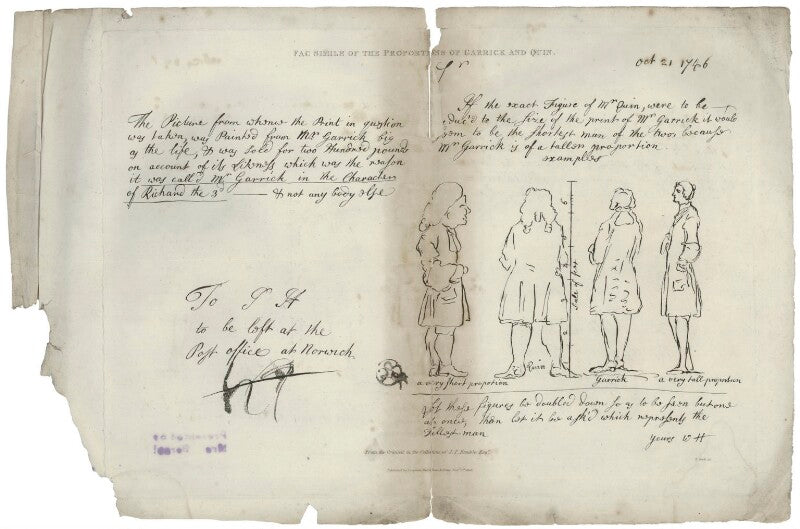 FAC SIMILE OF THE PROPORTIONS OF GARRICK AND QUIN.
Sr
Oct 21 1746
The Picture from whence the Print in question
was taken, was Painted from Mr Garrick big
as the life, & was Sold for two Hundred pounds
on account of its Likeness which was the reason
it was call'd Mr Garrick in the Character
of Richard the 3d & not any body else
If the exact Figure of Mr Quin, were to be
reduc'd to the size of the print of Mr Garrick it would
seem to be the shortest man of the two, because
Mr Garrick is of a taller proportion
examples
To J H
to be left at the
Post office at Norwich
Scale of feet
Quin
Garrick
a very short proportion
a very tall proportion
let these figures be doubled down so as to be seen but one
at once, then let it be ask'd which represents the
tallest man
Yours W H
Presented by
Mrs
From the Original in the Collection of J. P. Kemble Esqr.